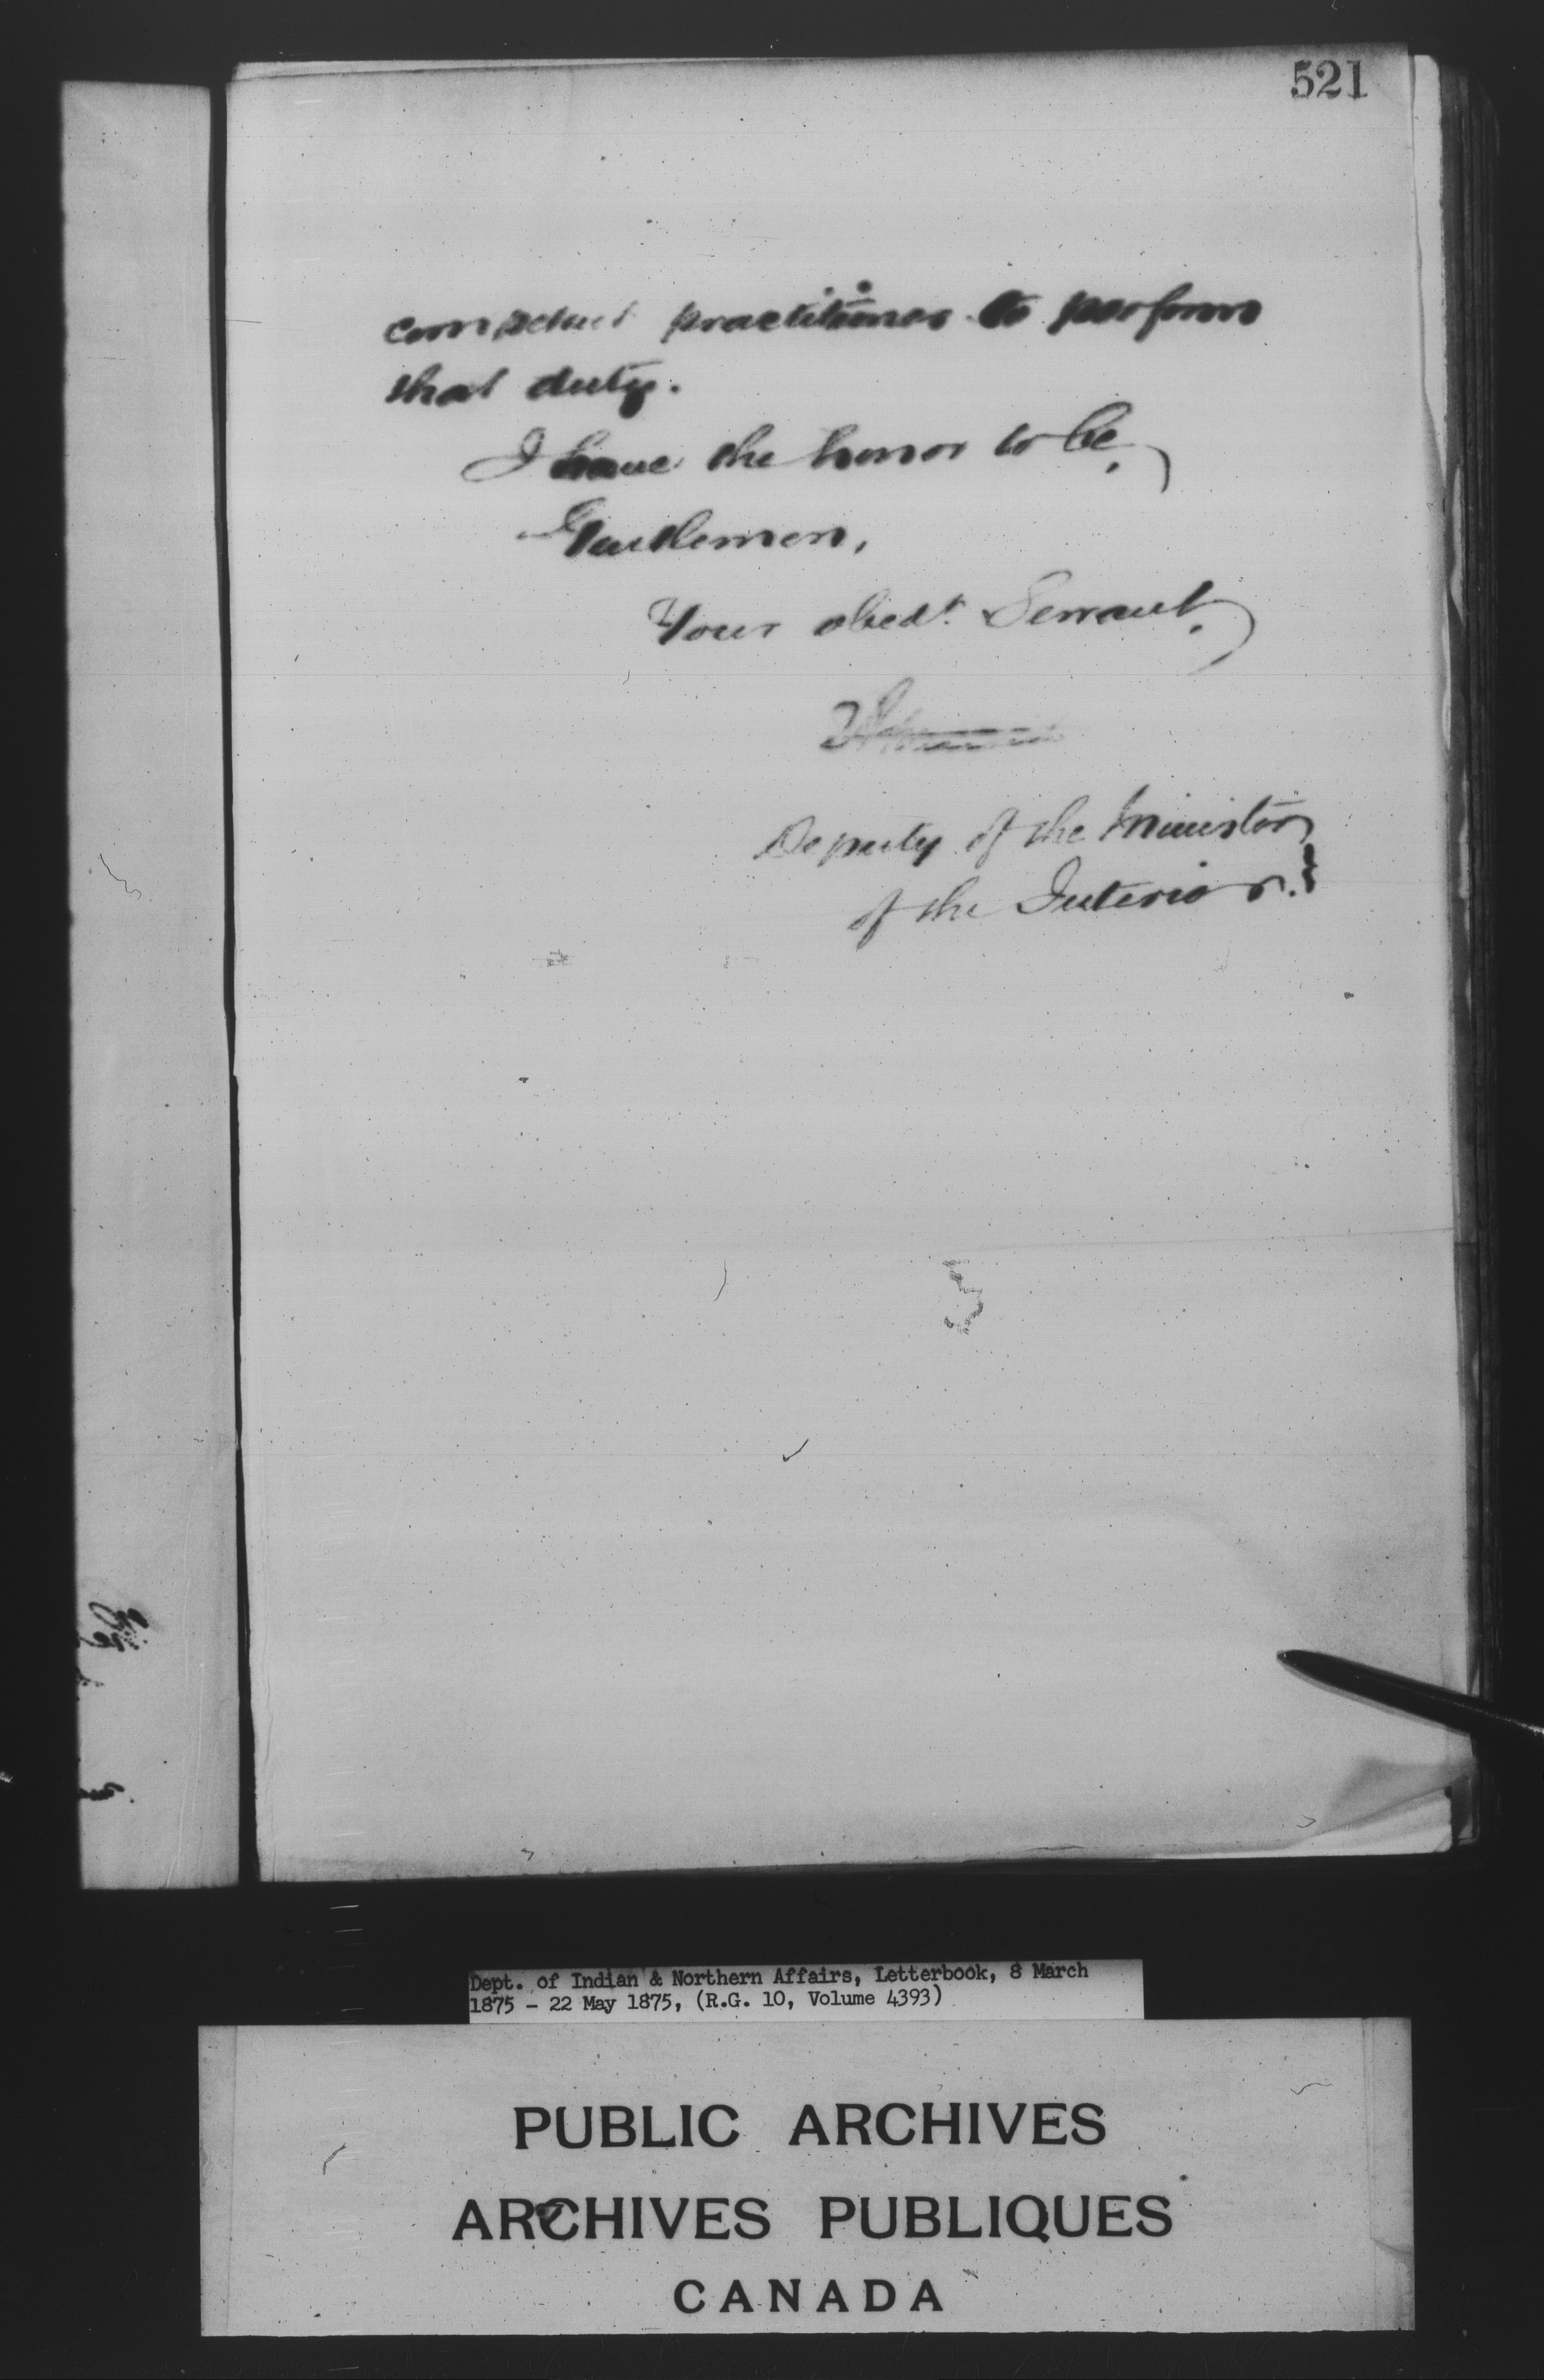 521
competent practitioner to perform
that duty.
I have the honor to be,
Gentlemen,
Your obedt. Servant,
Deputy of the Minister
of the Interior.
Dept. of Indian & Northern Affairs, Letterbook, 8 March
1875 - 22 May 1875, (R.G. 10, Volume 4393)
PUBLIC ARCHIVES
ARCHIVES PUBLIQUES
CANADA